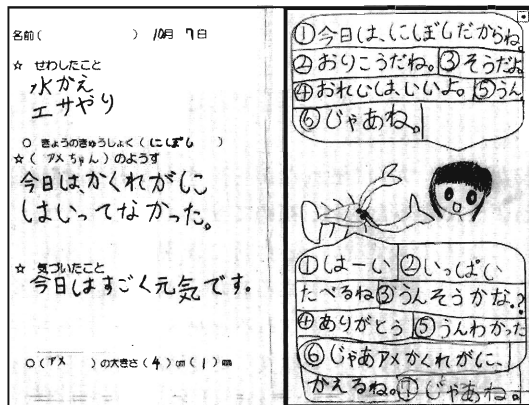 名前( ) 10月 7日
☆ せわしたこと
水かえ
エサやり
○ きょうのきゅうしょく(にぼし )
☆(アメちゃん)のようす
今日は、かくれがに
はいってなかった。
☆ 気づいたこと
今日はすごく元気です。
○(アメ )の大きさ(4)cm(1)mm
①今日は、にぼしだからね
②おりこうだね。③そうだよ
④おれいは、いいよ。⑤うん
⑥じゃあね。
①はーい ②いっぱい
たべるね③うんそうかな?
④ありがとう ⑤うんわかった
⑥じゃあアメかくれがに、
かえるね。⑦じゃあね。